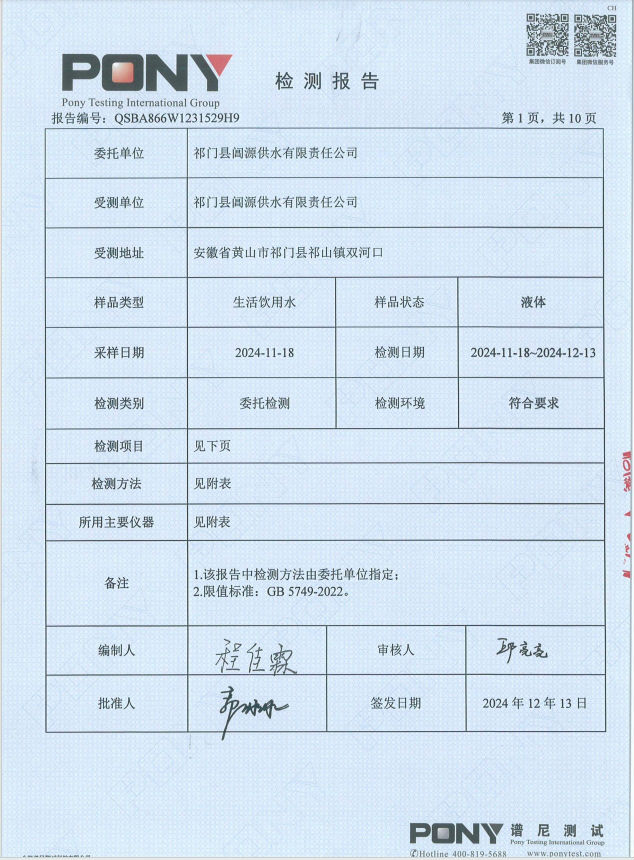 CH
集团微信订阅号 集团微信服务号
PONY
Pony Testing International Group
检测报告
报告编号：QSBA866W1231529H9
第 1 页，共 10 页
委托单位 祁门县阊源供水有限责任公司
受测单位 祁门县阊源供水有限责任公司
受测地址 安徽省黄山市祁门县祁山镇双河口
样品类型 生活饮用水 样品状态 液体
采样日期 2024-11-18 检测日期 2024-11-18~2024-12-13
检测类别 委托检测 检测环境 符合要求
检测项目 见下页
检测方法 见附表
所用主要仪器 见附表
备注
1.该报告中检测方法由委托单位指定；
2.限值标准：GB 5749-2022。
编制人 程佳霖 审核人 邱亮亮
批准人 签发日期 2024 年 12 月 13 日
PONY 谱尼测试
Pony Testing International Group
✆Hotline 400-819-5688 www.ponytest.com